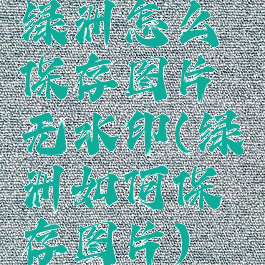 绿洲怎么
保存图片
无水印(绿
洲如何保
存图片)